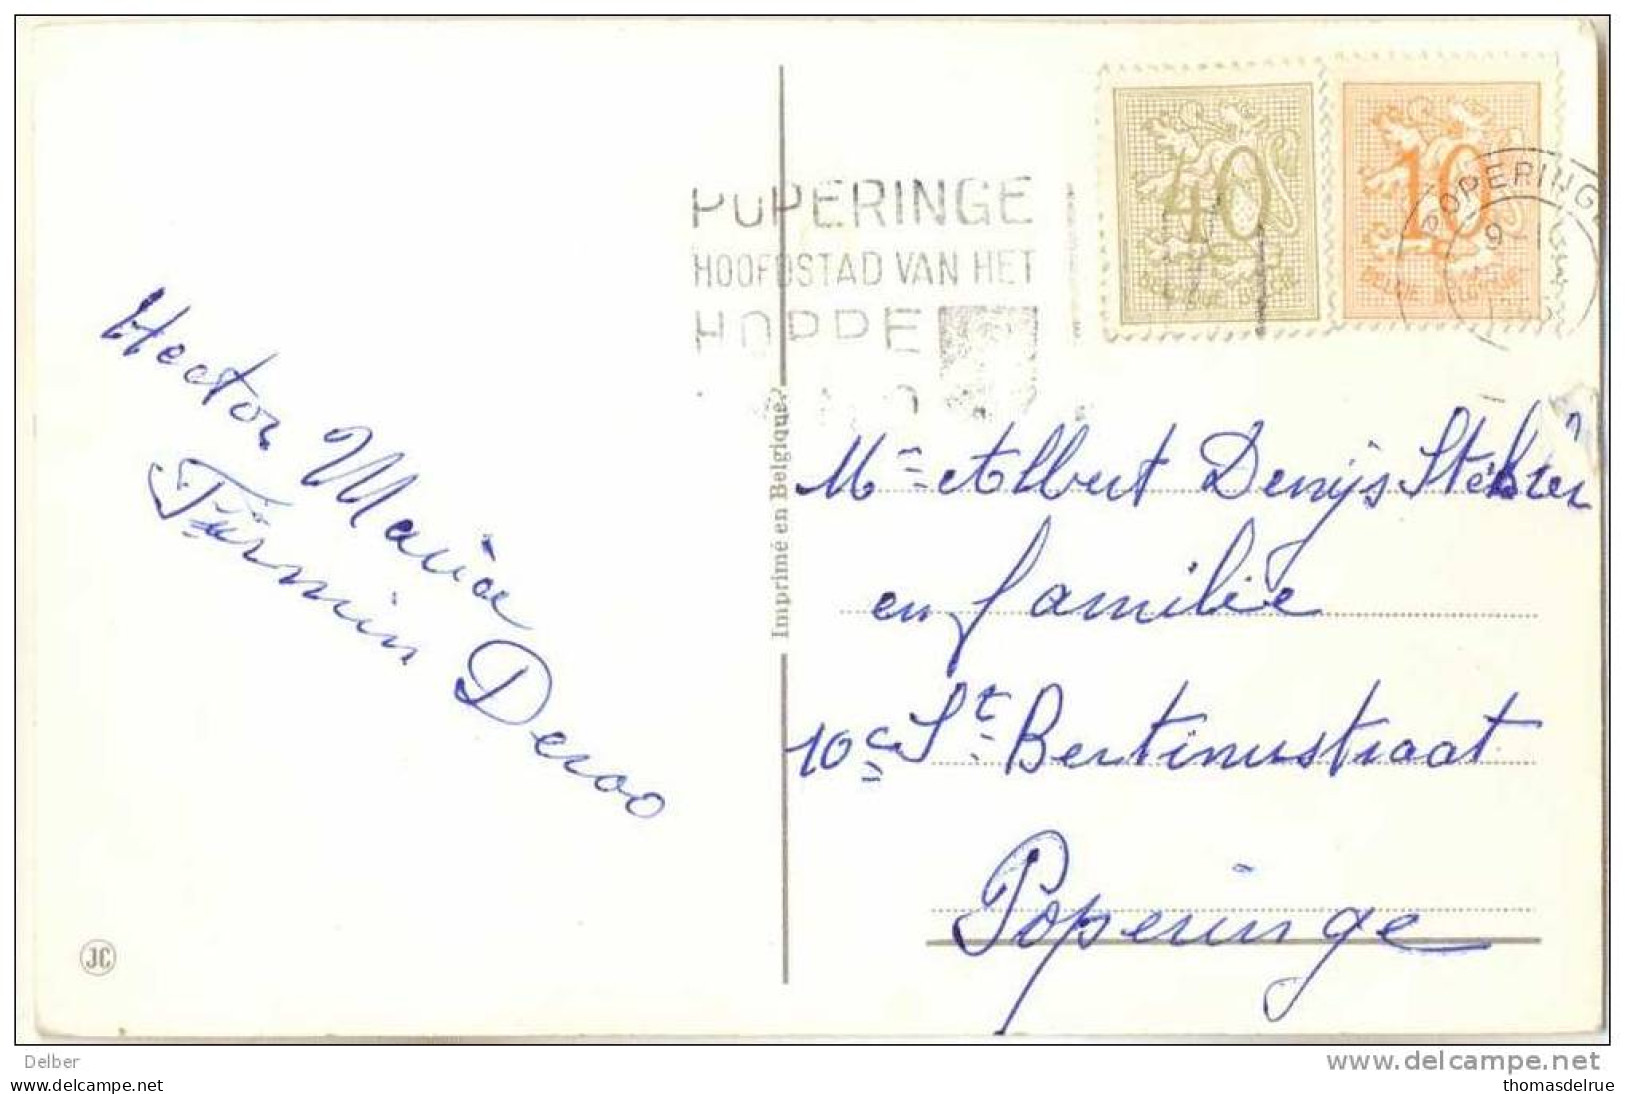 POPERINGE
HOOFDSTAD VAN HET
HOPPE
40
BELGIQUE BELGIE
10
BELGIE BELGIQUE
POPERINGE
9
Hector Maria
Firmin Deroo
Imprimé en Belgique
Mr Albert Denijs
en familie
10c St Bertinusstraat
Poperinge
JC
Delber
delcampe.net
www.delcampe.net
thomasdelrue